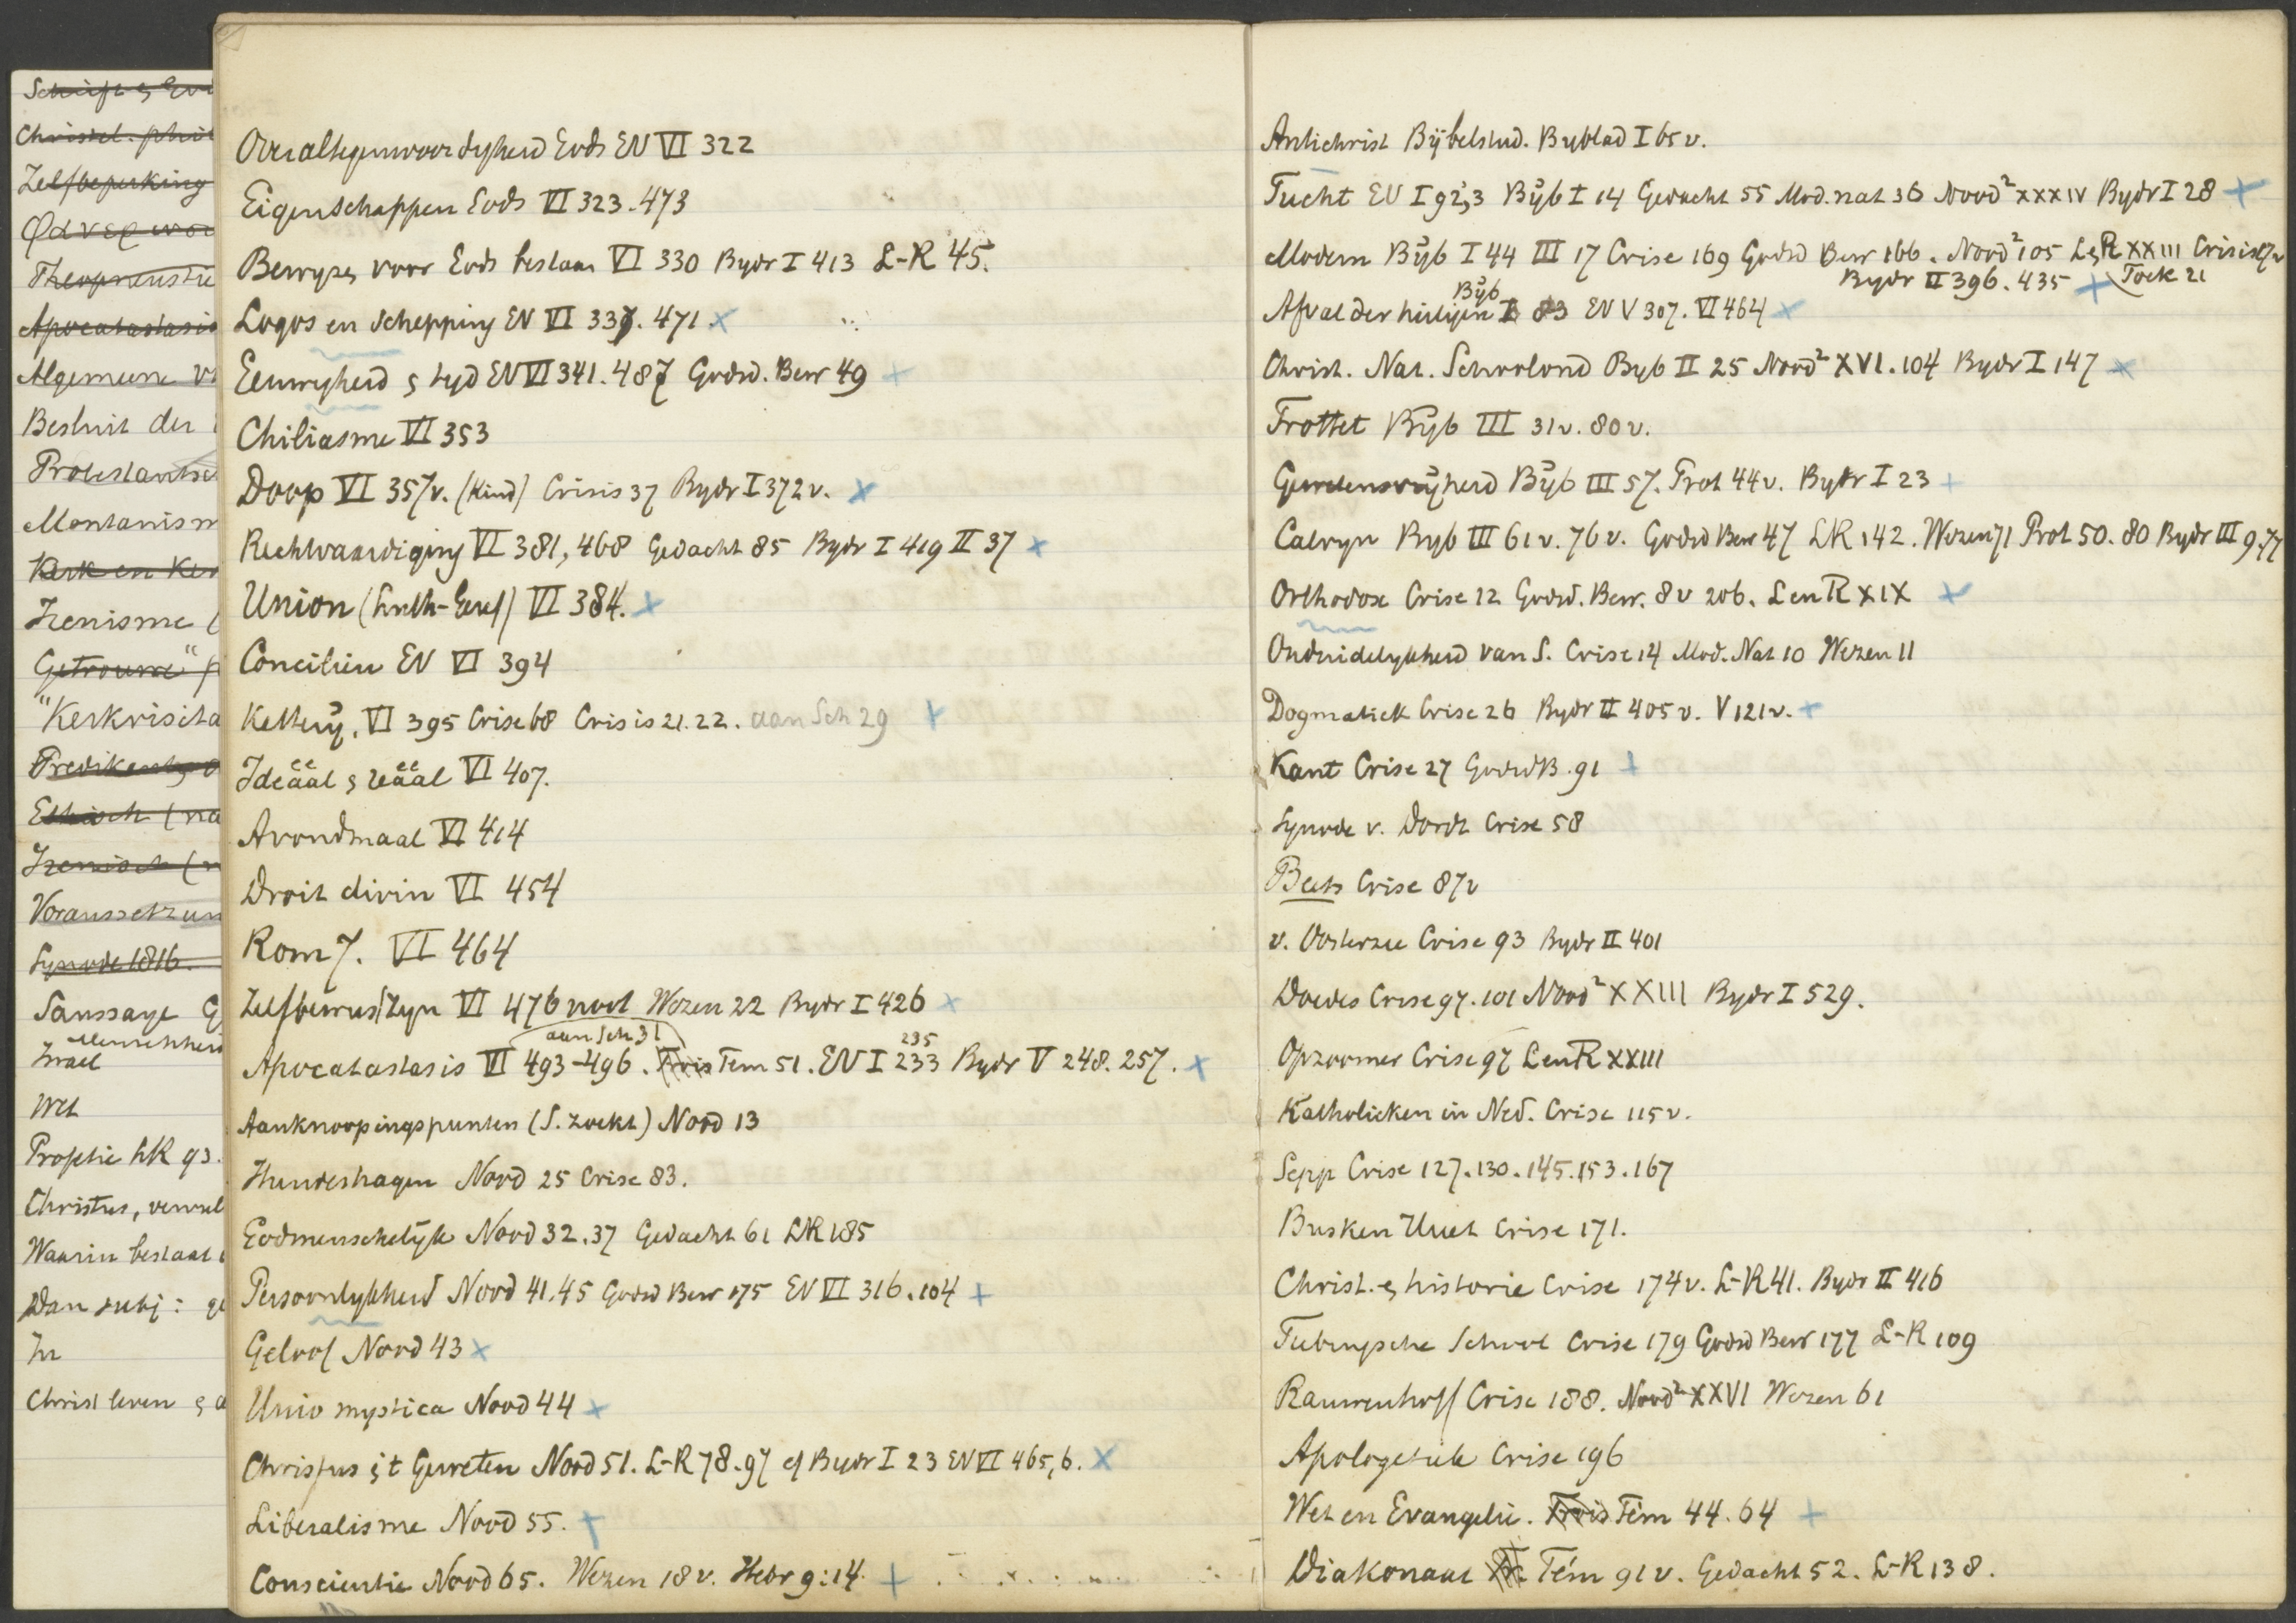 Schrift &
Christel. phil
Zelfbeperking
Theopneustie
Apocatastasis
Algemeene
Besluit der
Protestantsc
Montanism
Kerk en Ker
Irenisme (
Getrouwe"
"Kerkvisita
Predikant
Ethisch (na
Irenisch (
Voraussetzun
Synode 1816.
Saussaye G
Menschheid
Israel
Wet
Profetie LR 93.
Christus, vervul
Waarin bestaat
Dan subj: ge
In
Christ leven &
Overaltegenwoordigheid Gods EN VI 322
Eigenschappen Gods VI 323.473
Bewyzen voor Gods bestaan VI 330 Bydr I 413 L-R 45.
Logos en Schepping EN VI 337. 471 x
Eeuwigheid & tyd EN VI 341. 487 Godsd. Bew 49 +
Chiliasme VI 353
Doop VI 357v. (Kind) Crisis 37 Bydr I 372v. x
Rechtvaardiging VI 381, 468 Gedacht 85 Bydr I 419 II 37 x
Union (Luth-Geref) VI 384. x
Conciliën EN VI 394
Kettery. VI 395 Crise 68 Crisis 21.22. aan Sch 29 +
Ideëel & reëel VI 407.
Avondmaal VI 414
Droit divin VI 454
Rom 7. VI 464
Zelfbewustzyn VI 476 noot Wezen 22 Bydr I 426 x
aan Sch 31 235
Apocatastasis VI 493-496. Trois Tem 51. EN I 233 Bydr V 248. 257. x
Aanknoopingspunten (S. zoekt) Nood 13
Hundeshagen Nood 25 Crise 83.
Godmenschelijk Nood 32.37 Gedacht 61 LR 185
Persoonlykheid Nood 41.45 Godsd Bew 175 EN VI 316.104 +
Geloof Nood 43 x
Unio mystica Nood 44 x
Christus & 't Geweten Nood 51. L-R 78.97 cf Bydr I 23 EN VI 465,6. x
Liberalisme Nood 55. +
Conscientie Nood 65. Wezen 18v. Hebr 9:14. +
Antichrist Bijbelstud. Byblad I 65v.
Tucht EN I 92,3 Bijb I 14 Gedacht 55 Mod. nat 36 Nood² XXXIV Bydr I 28 +
Modern Bijb I 44 III 17 Crise 169 Godsd Bew 166. Nood² 105 L&R XXIII Crisis
Bydr II 396. 435 + Toek 21
Bijb
Afval der heiligen I 83 EN V 307. VI 464 x
Christ. Nat. Schoolond Byb II 25 Nood² XVI. 104 Bydr I 147 x
Trottet Bijb III 31v. 80v.
Gewetensvrijheid Bijb III 57. Prot 44v. Bydr I 23 +
Calvyn Byb III 61v. 76v. Godsd Bew 47 LR 142. Wezen 71 Prot 50. 80 Bydr III 9.77
Orthodox Crise 12 Godsd. Bew. 8v 206. L en R XIX x
Onduidelykheid van S. Crise 14 Mod. Nat 10 Wezen 11
Dogmatiek Crise 26 Bydr II 405v. V 121v. +
Kant Crise 27 Godsd B. 91 +
Synode v. Dordt Crise 58
Beets Crise 87v
v. Oosterzee Crise 93 Bydr II 401
Doedes Crise 97. 101 Nood² XXIII Bydr I 529.
Opzoomer Crise 97 L en R XXIII
Katholieken in Ned. Crise 115v.
Sepp Crise 127. 130. 145. 153. 167
Busken Huet Crise 171.
Christ. & historie Crise 174v. L-R 41. Bydr II 416
Tubingsche School Crise 179 Godsd Bew 177 L-R 109
Rauwenhoff Crise 188. Nood² XXVI Wezen 61
Apologetiek Crise 196
Wet en Evangelie. Trois Tém 44. 64 +
Diakonaat Tr. Tém 91v. Gedacht 52. L-R 138.